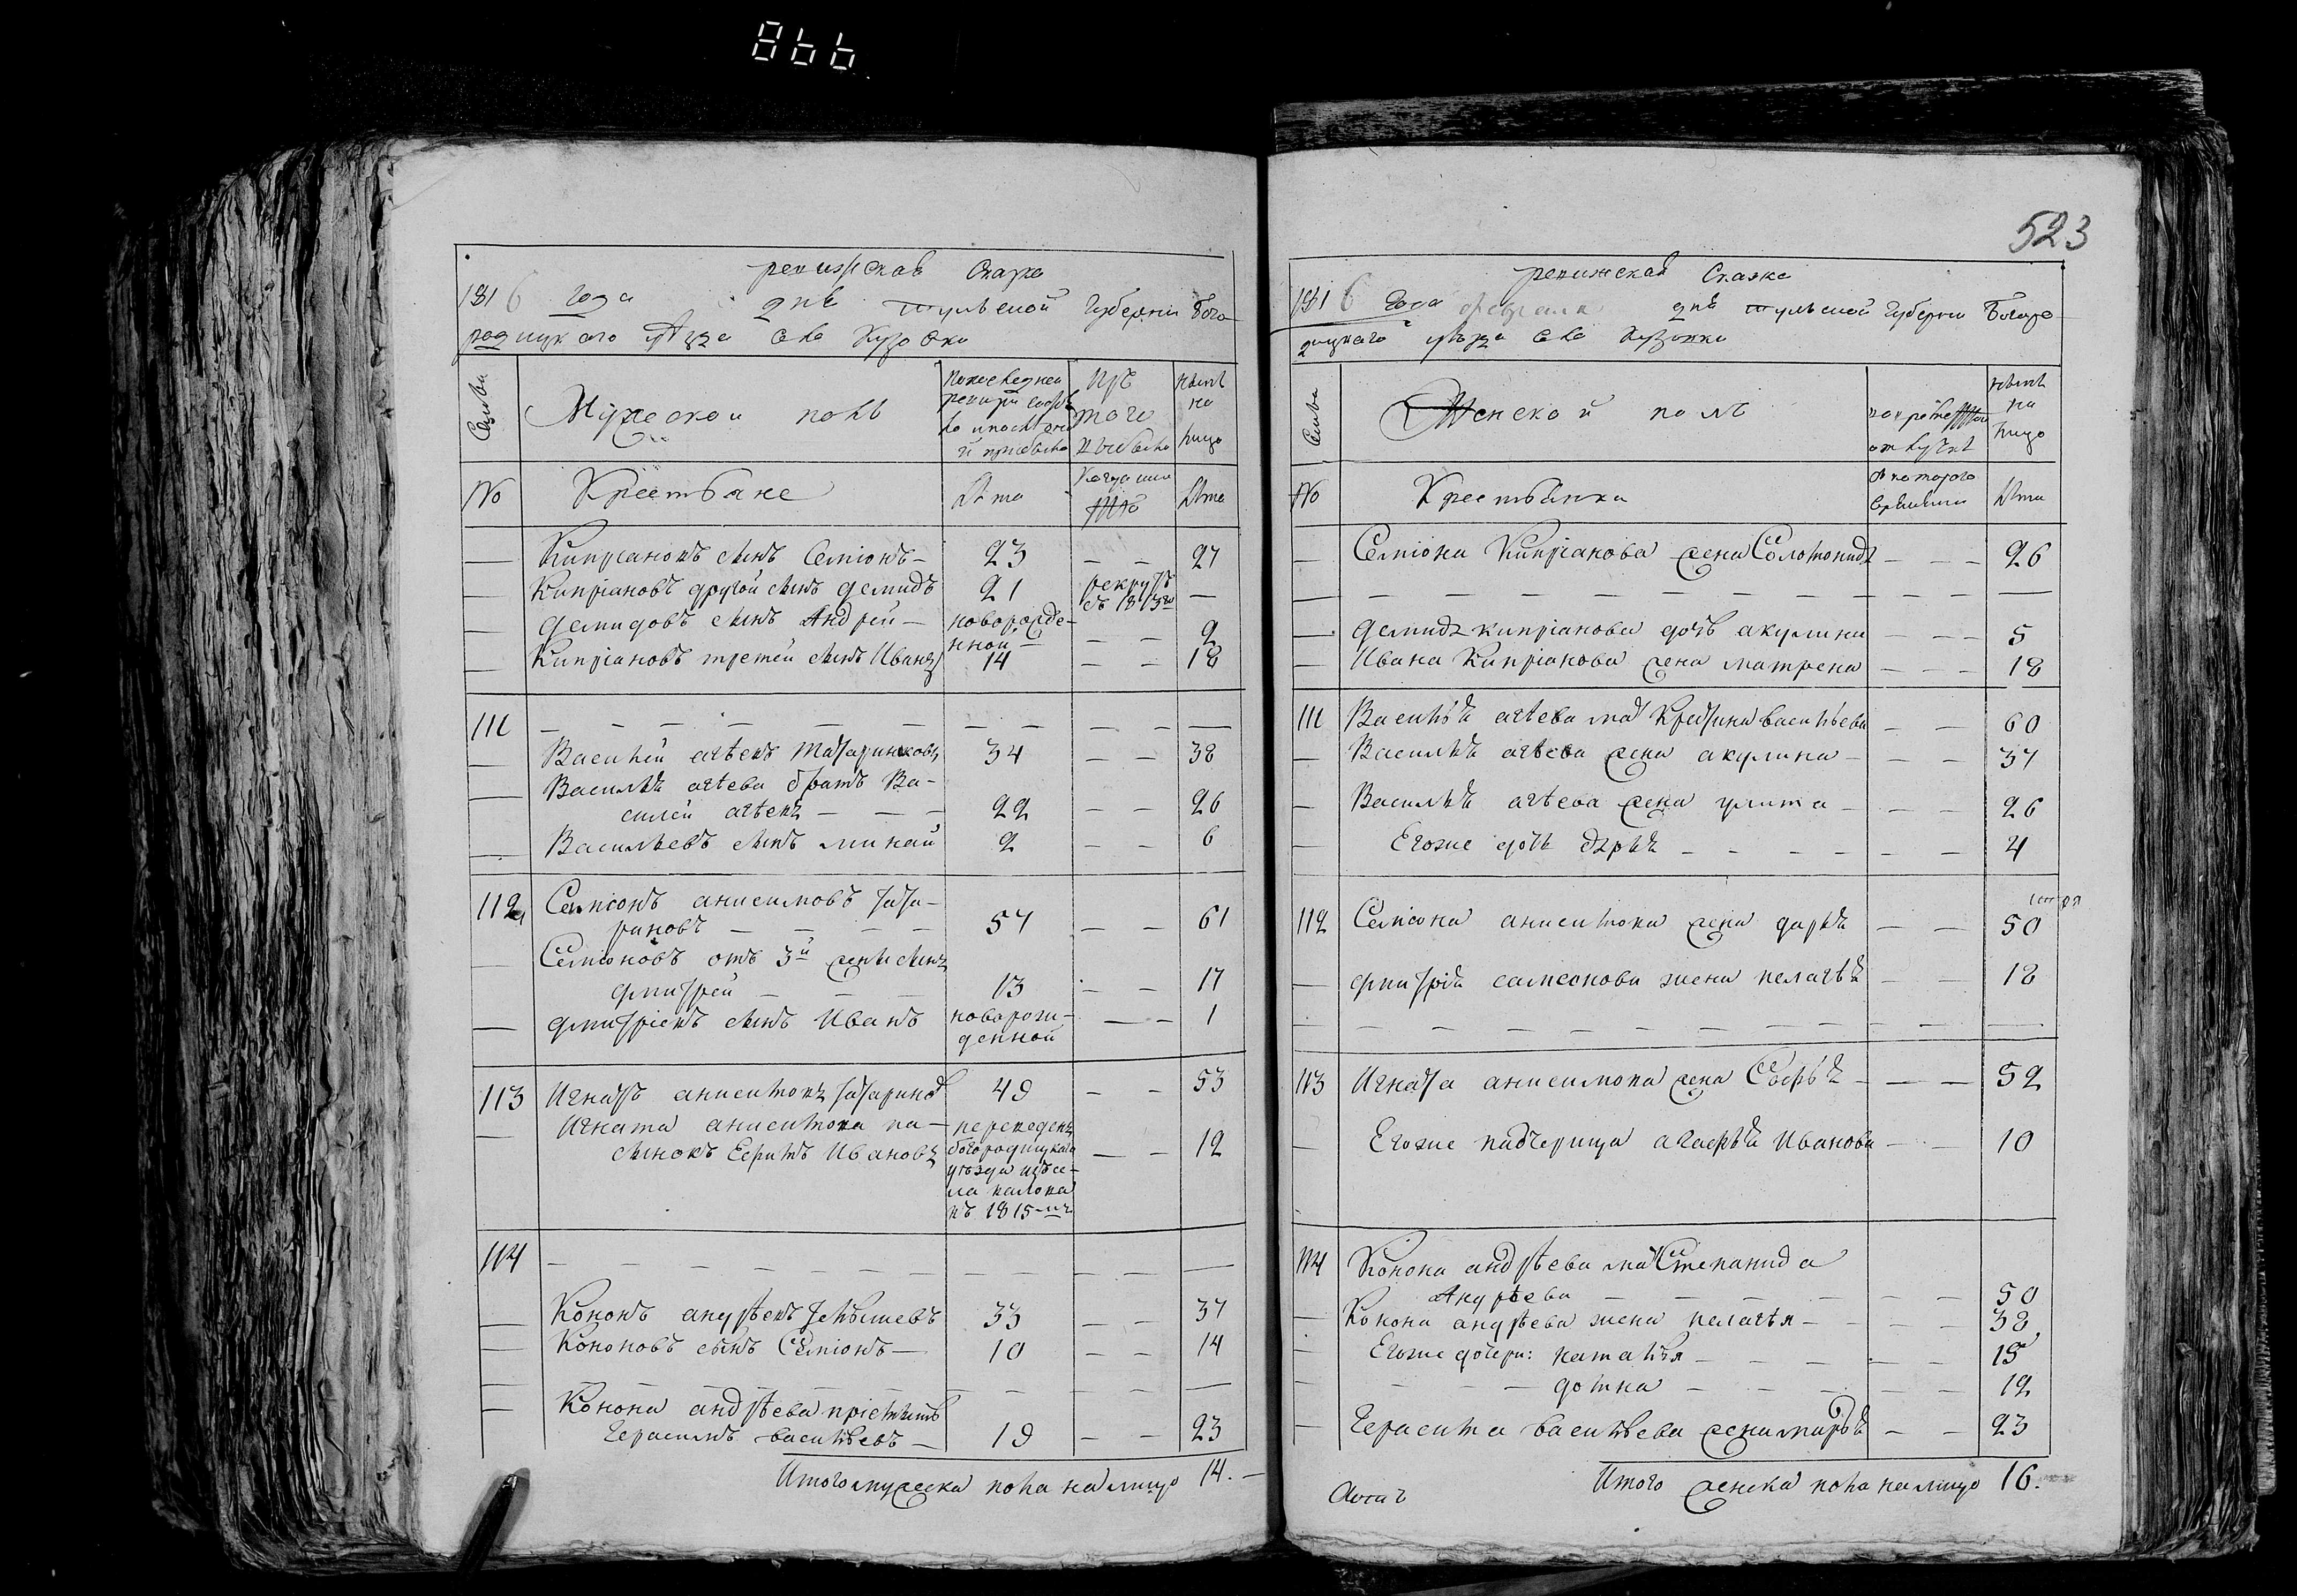 866
ревижская Скаска
1816 года дня тульской Губерни Бого
родицкаго уезда села Кузовки
Семьи
Мужеской полъ
По последней
ревизи состо
ло и после оной
и прибыло
Изъ
того
выбыло
ныне
на
лицо
No
Крестьяне
Лета
Когда имянно
Лета
— Киприяновъ сынъ Семионъ — 23 — — 27
— Киприяновъ другой сынъ Демидъ 21 рекрутъ
съ 1813го —
— Демидовъ сынъ Андрей — новорожде-
нной — — — 2
— Киприяновъ третей сынъ Иванъ 14 — — 18
111 — — — — — — — — — — —
— Василий агеевъ татариновъ 34 — — 38
— Василья агеева братъ Ва-
силей агеевъ — — — 22 — — 26
— Васильевъ сынъ минай 2 — — 6
112 Семионъ анисимовъ тата-
риновъ — — — — 57 — — 61
— Семионовъ отъ 3й жены сынъ
дмитрей — — — 13 — — 17
— дмитриевъ сынъ Иванъ новорож-
денной — — 1
113 Игнатъ анисимовъ татаринов 49 — — 53
— Игната анисимова па-
сынокъ Ефимъ Ивановъ
переведенъ
богородицкаго
уезда изъ се-
ла
въ 1815-мъ
— — 12
114 — — — — — — — — — — —
— Кононъ андреевъ 33 — — 37
— Кононовъ сынъ Семионъ — 10 — — 14
— — — — — — — — — — —
— Конона андреева приемышъ
Герасимъ васильевъ — 19 — — 23
Итого мужеска пола на лицо 14. —
523
ревижская Скаска
1816 Года февраля дня тульской Губерни Богоро
дицкаго уезда села Кузовки
Семьи
Женской полъ
во временной
отлучке
ныне
на
лицо
No
Крестьянки
съ которого
времяни
Лета
— Семиона Киприянова жена Соломонида — — — 26
— — — — — — — — — — —
— Демида киприянова дочь акулина — — — 5
— Ивана Киприянова жена матрена — — — 18
111 Василья агеева мать Кристина васильева — — 60
— Василья агеева жена акулина — — — 37
— Василья агеева жена улита — — — 26
— Егоже дочь дарья — — — — — — 4
112 Семиона анисимова жена дарья — — 50
— дмитрия самсонова жена пелагея — — 18
— — — — — — — — — — —
113 Игната анисимова жена Софья — — — 52
— Егоже падчерица агафья Иванова — — 10
114 Конона андреева мать Степанида
Андреева — — — — — — 50
— Конона андреева жена пелагея — — — — 38
— Егоже дочери: наталья — — — — — 15
— — — — домна — — — — — 12
— Герасима васильева жена марья — — 23
Итого женска пола на лицо 16.